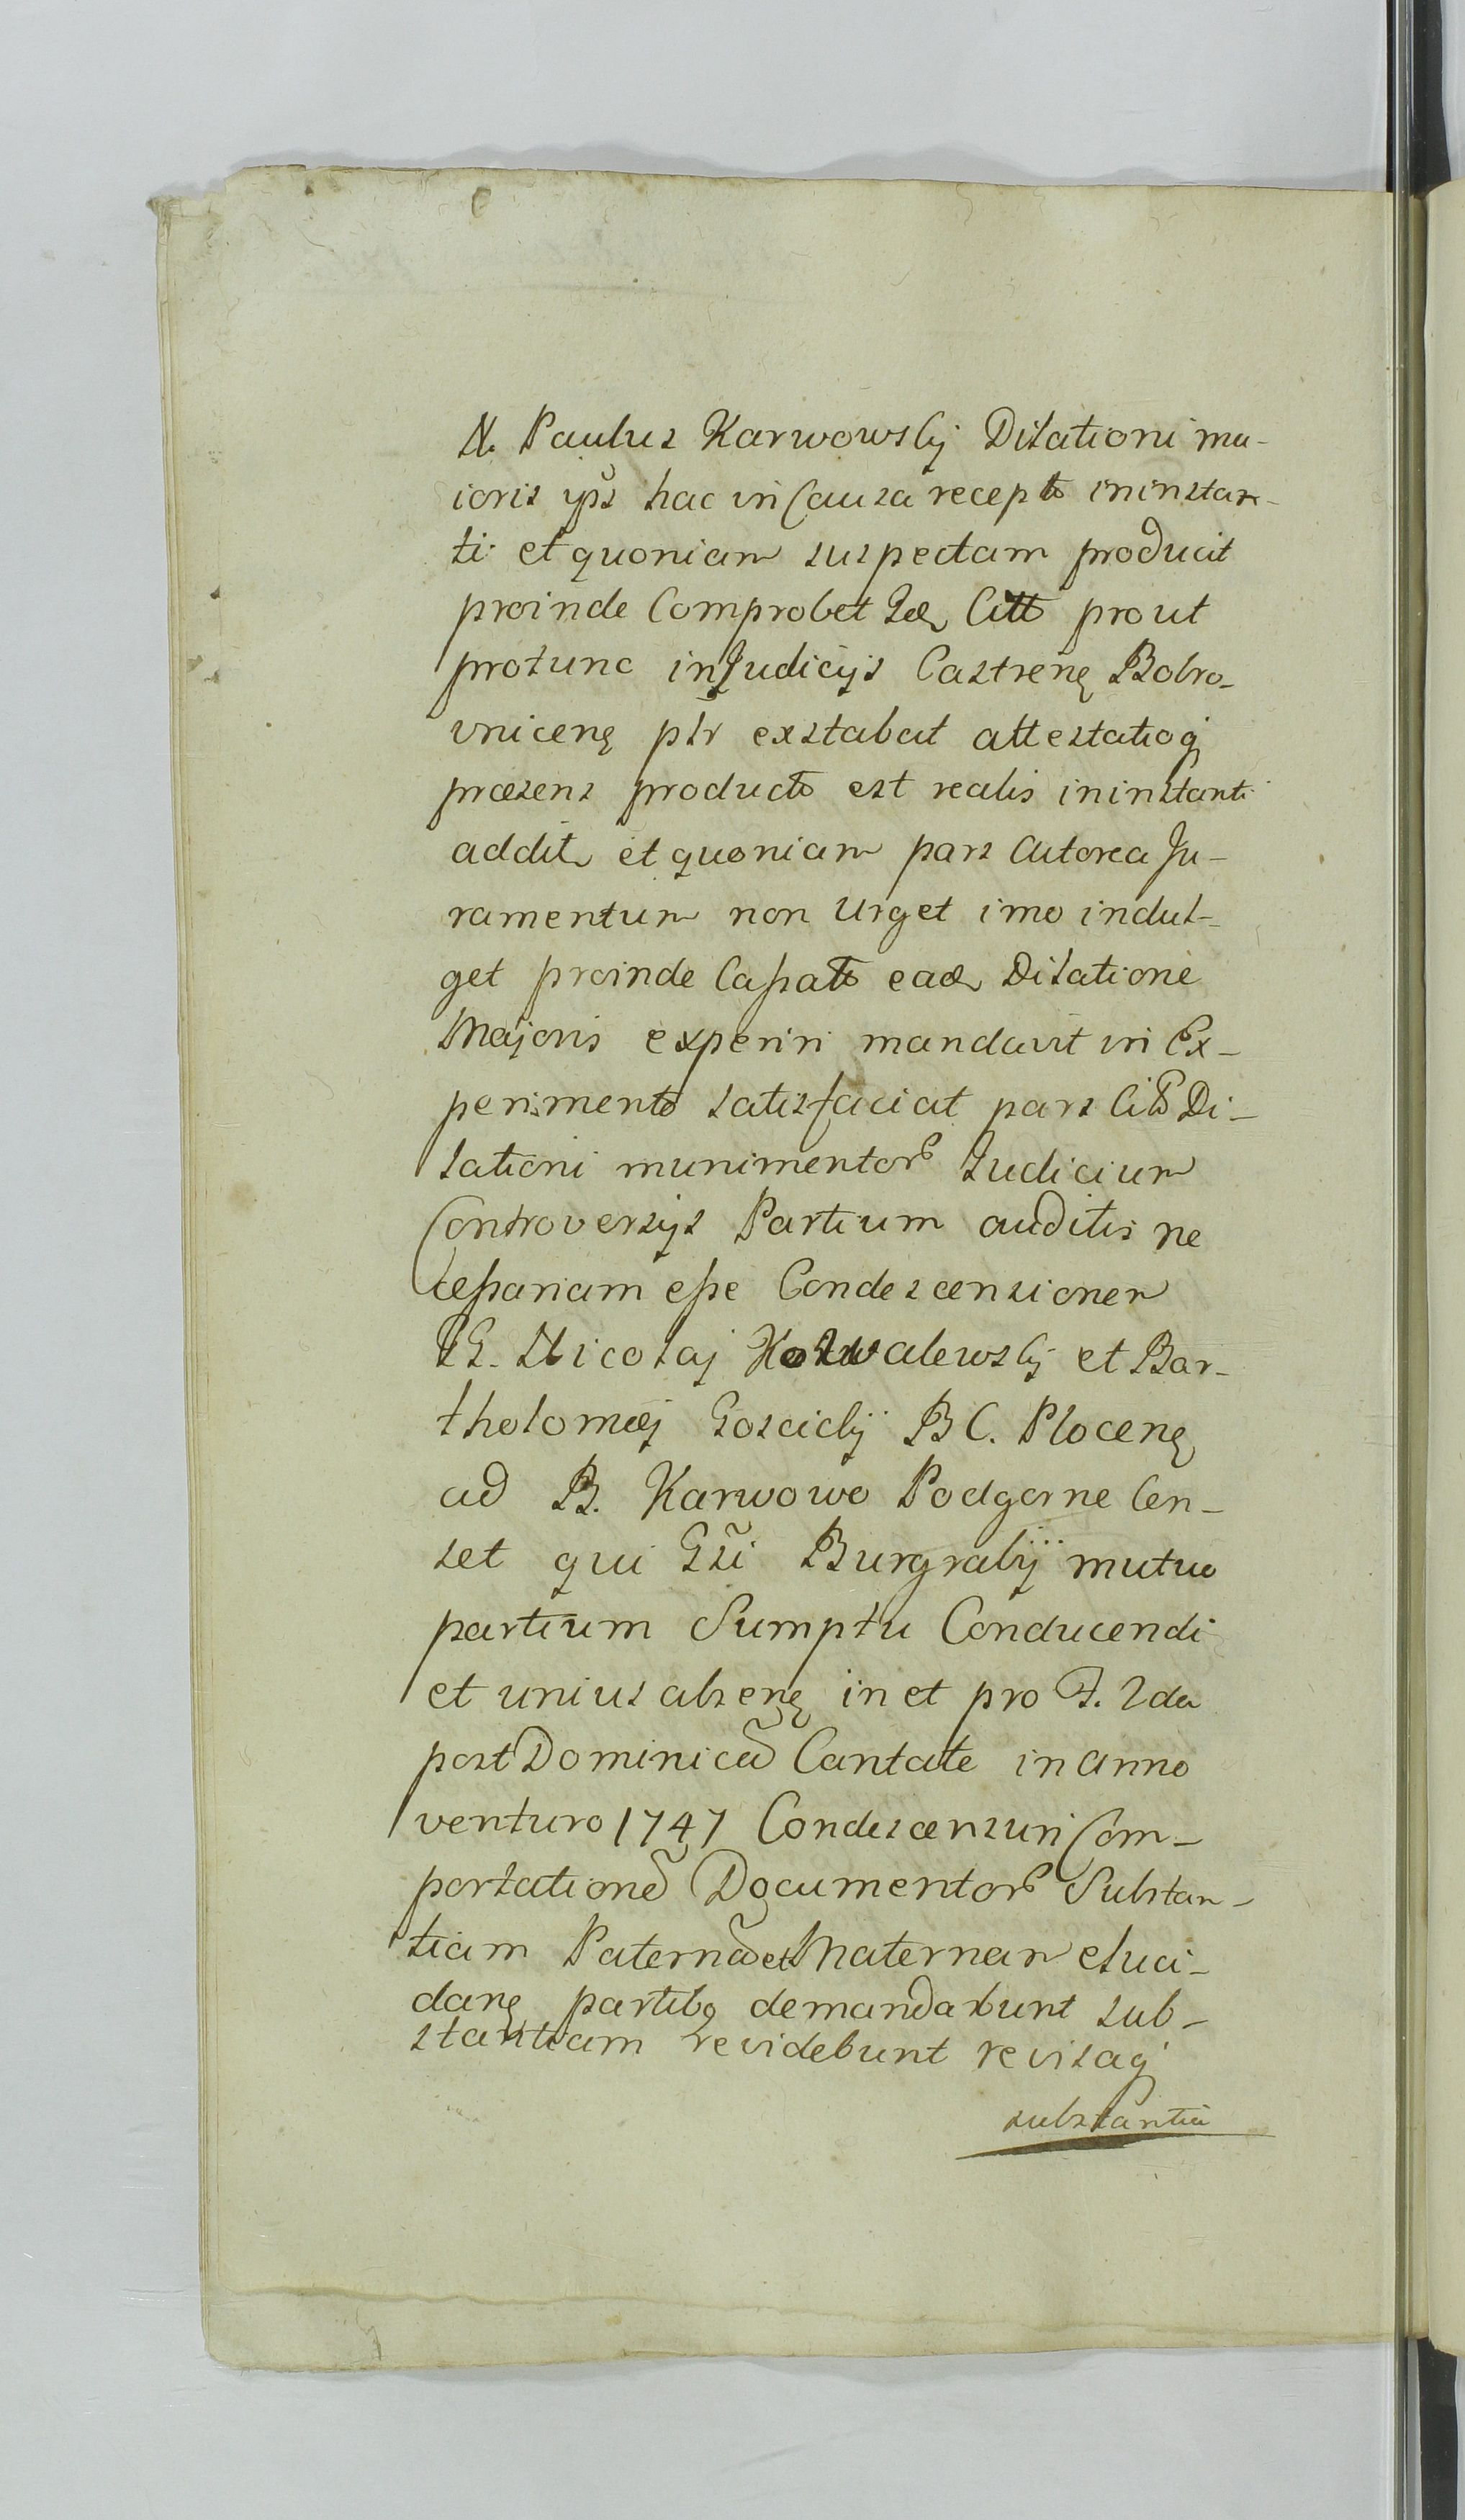 N. Paulus Karwowskj Dilationi ma-
ioris yps hac in Causa recepto ininstan-
ti et quoniam suspectam producit
proinde Comprobet Citto prout
protunc in Judicijs Castrenę Bobro-
vnicenę exstabat attestatioq
præsens producto est realis ininstanti
addit et quoniam pars Actorea Ju-
ramentum non Urget imo indul-
get proinde Cassato eade Dilatione
Majoris experiri mandavit in Ex-
perimento satisfaciat pars Citto Di-
lationi munimentor Judicium
Controversijs Partium auditis ne
cessariam esse Condescensionem
GG. Nicolaj Kowalewskj et Bar-
tholomæj Goscickij B C. Plocenę
ad B. Karwowo Podgorne Cen-
set qui Gsi Burgrabij mutuo
partium Sumptu Conducendi
et unius absenę in et pro F. 2da
post Dominică Cantate in anno
venturo 1747 Condescensuri Com-
portatione Documentor Substan-
tiam Paternă et Maternam eluci-
danę partibq demandabunt sub-
stantiam revidebunt revisaq
substantia